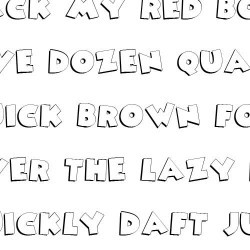 CK MY RED BO
VE DOZEN QUA
UICK BROWN FO
VER THE LAZY
UICKLY DAFT JU